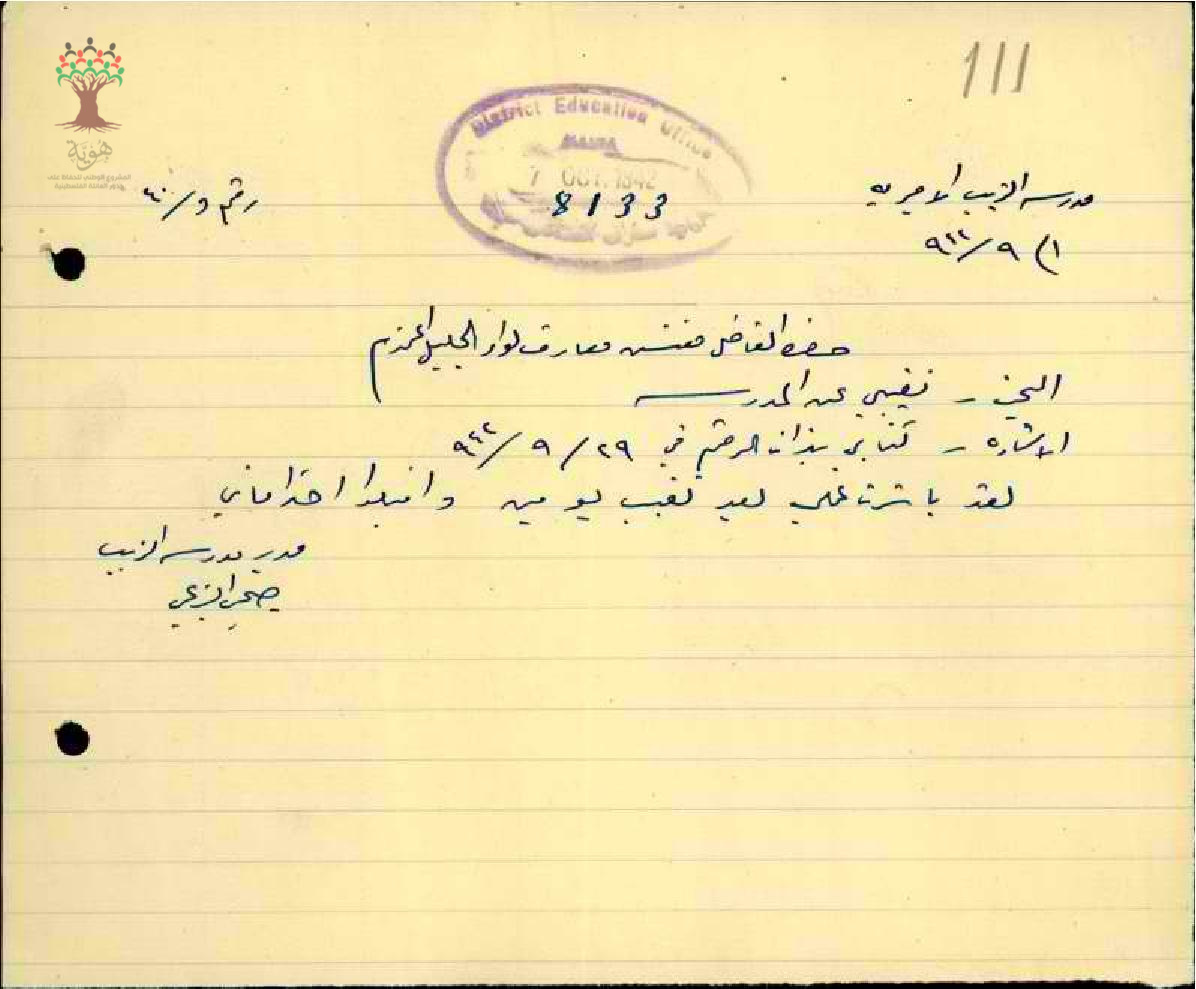 111
هوية
المشروع الوطني للحفاظ على
جذور العائلة الفلسطينية
District Education Office
7 OCT. 1942
8133
مدرسة الزيب الاميرية
رقم و/٤٠
٩٤٢/٩
حضرة الفاضل مفتش معارف لواء الجليل المحترم
البحث - تغيبي عن المدرسه
الاشارة - كتابي بذات الرقم في ٢٩/٩/٩٤٢
لقد باشرت عملي بعد تغيب يومين واقبلوا احتراماتي
مدير مدرسة الزيب